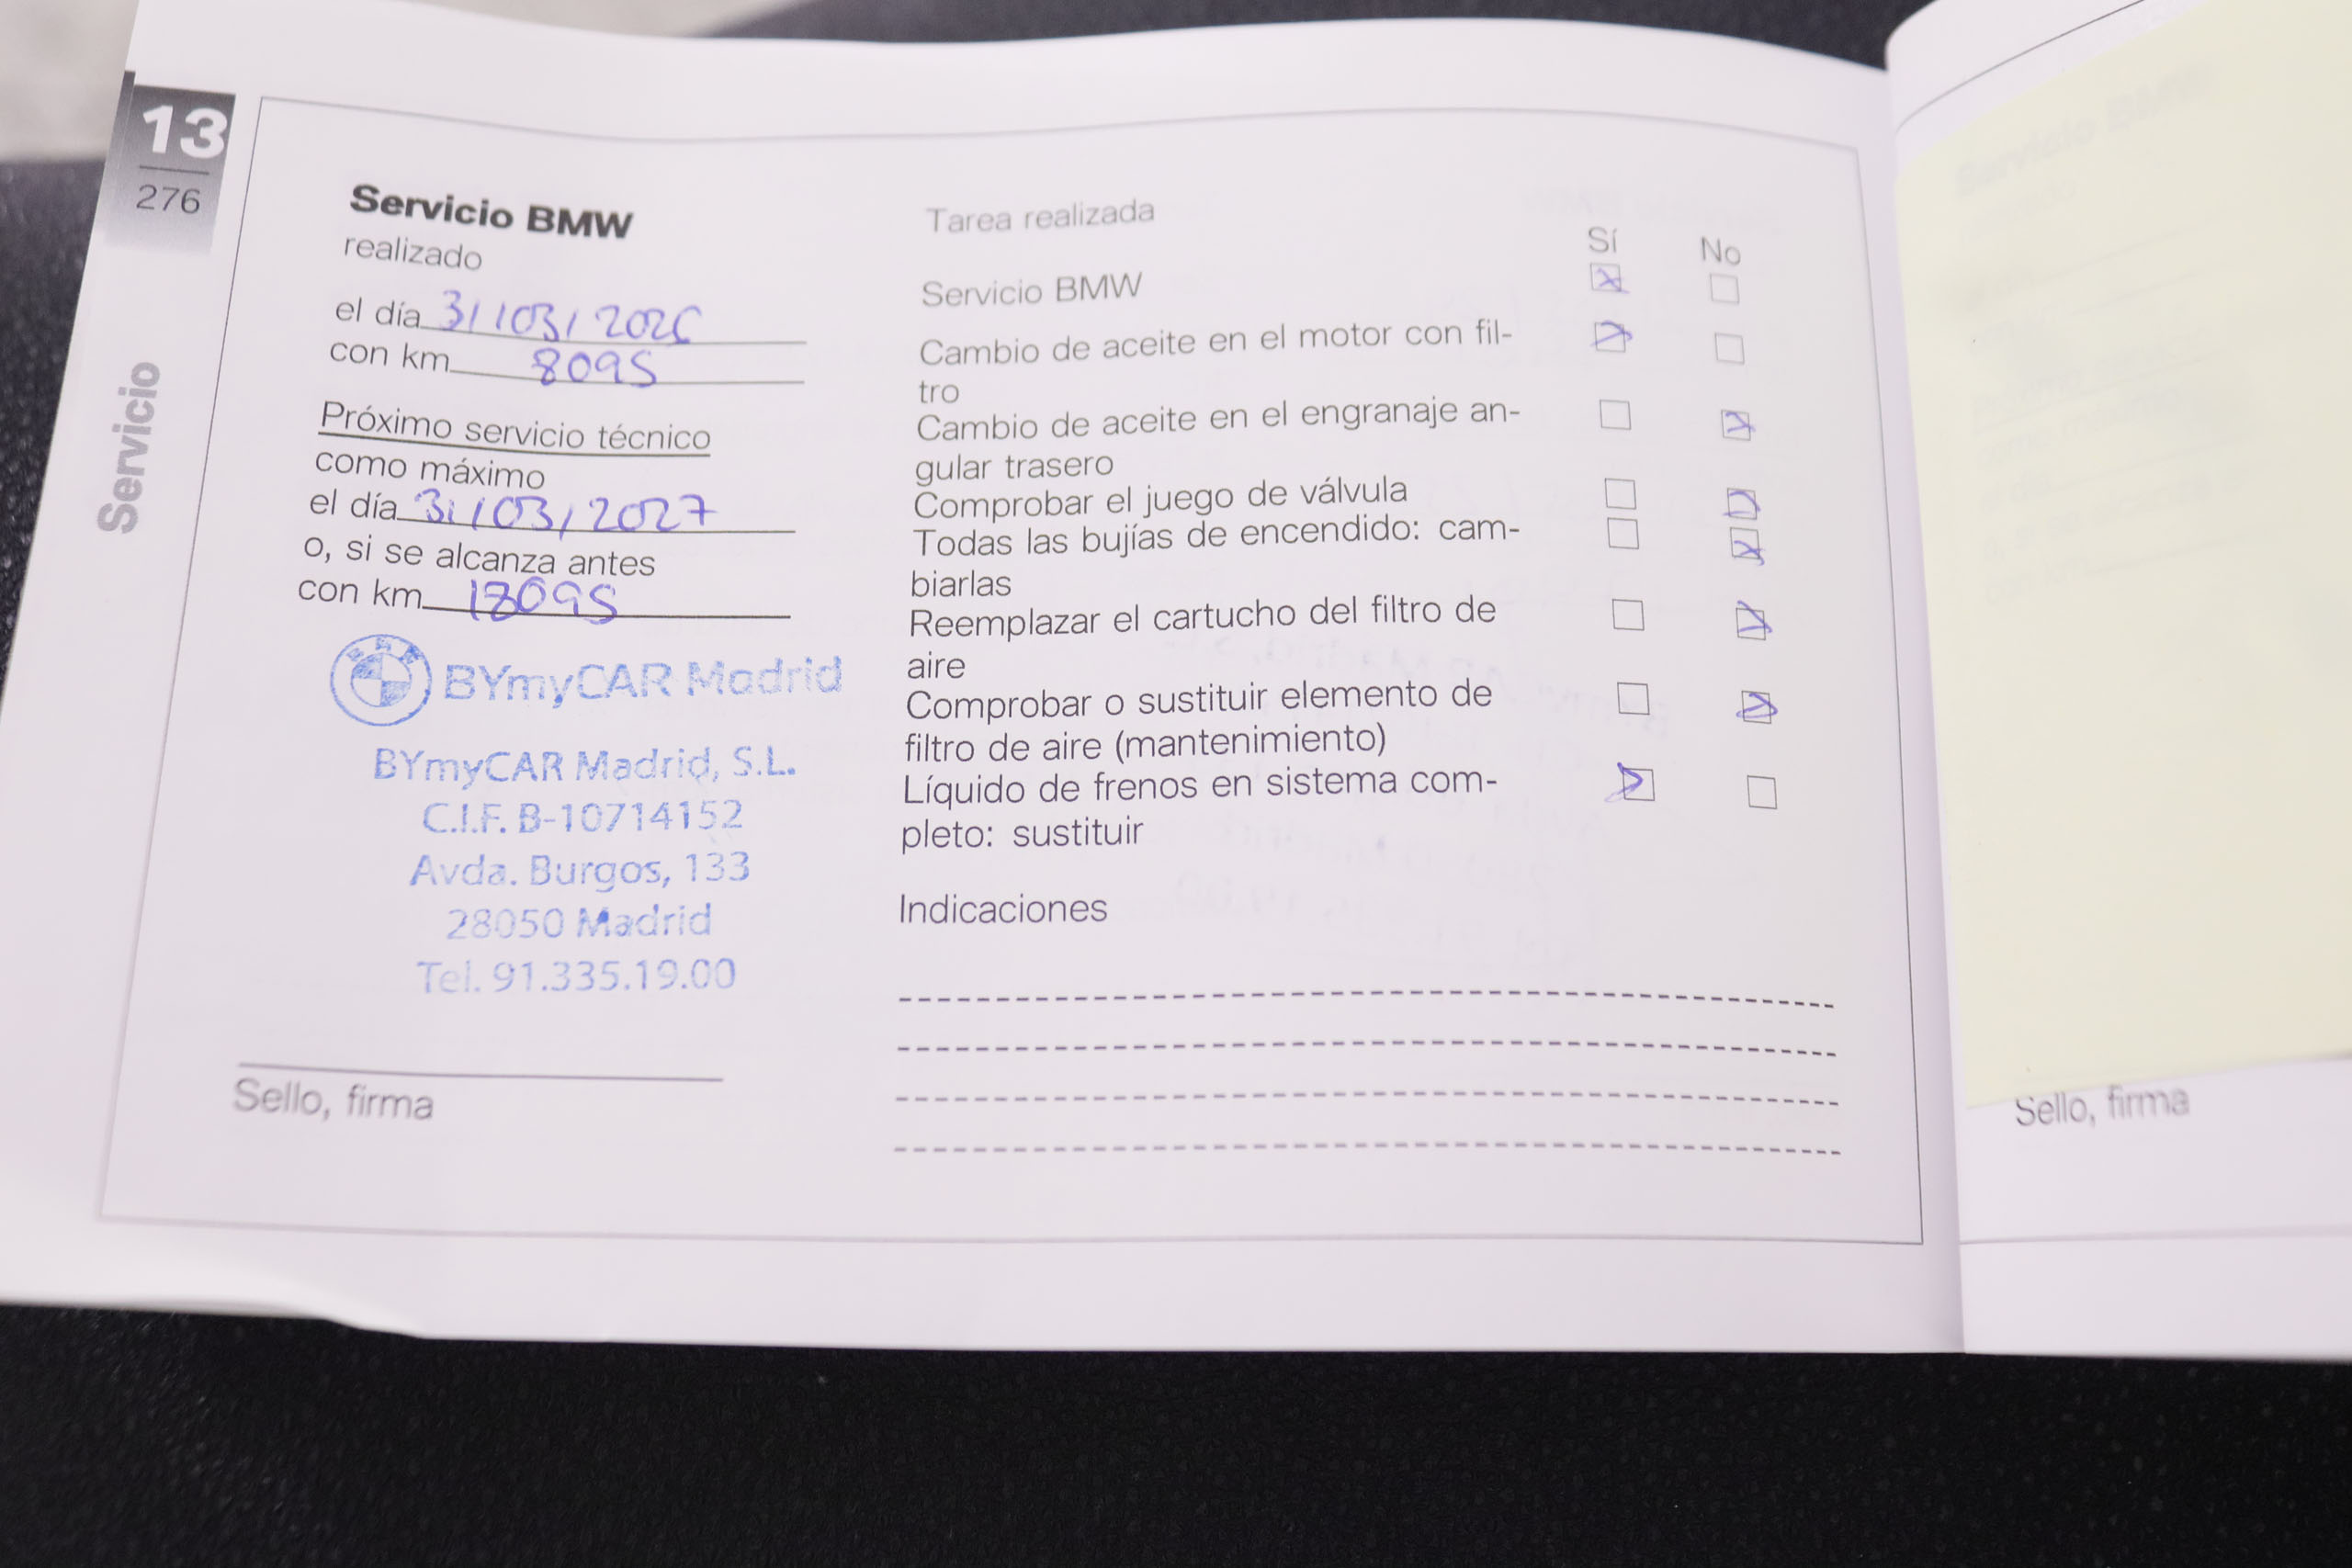 13
276
Servicio
Servicio BMW
realizado
el día 31/03/2026
con km 8095
Próximo servicio técnico
como máximo
el día 31/03/2027
o, si se alcanza antes
con km 18095
BYmyCAR Madrid
BYmyCAR Madrid, S.L.
C.I.F. B-10714152
Avda. Burgos, 133
28050 Madrid
Tel. 91.335.19.00
Sello, firma
Tarea realizada
Sí No
Servicio BMW
Cambio de aceite en el motor con fil-
tro
Cambio de aceite en el engranaje an-
gular trasero
Comprobar el juego de válvula
Todas las bujías de encendido: cam-
biarlas
Reemplazar el cartucho del filtro de
aire
Comprobar o sustituir elemento de
filtro de aire (mantenimiento)
Líquido de frenos en sistema com-
pleto: sustituir
Indicaciones
Sello, firma